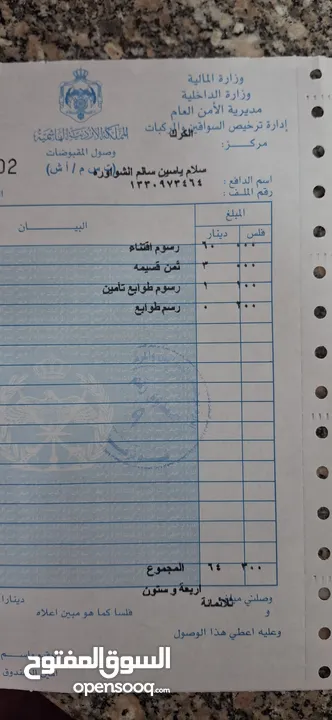 وزارة المالية
وزارة الداخلية
مديرية الأمن العام
إدارة ترخيص السواقين والمركبات
مركز: الكرك
المملكة الأردنية الهاشمية
وصول المقبوضات
02
اسم الدافع: سلام ياسين سالم الشواوره
رقم الملف: ١٣٣٠٩٧٣٤٦٤
المبلغ
فلس دينار البيان
٠٠٠ ٦٠ رسوم اقتناء
٠٠٠ ٣ ثمن قسيمه
١٠٠ ١ رسوم طوابع تأمين
٢٠٠ ٠ رسم طوابع
٣٠٠ ٦٤ المجموع
وصلني مبلغ أربعة و ستون دينارا
و ثلاثمائة فلسا كما هو مبين اعلاه
وعليه اعطي هذا الوصول
السوق المفتوح
opensooq.com